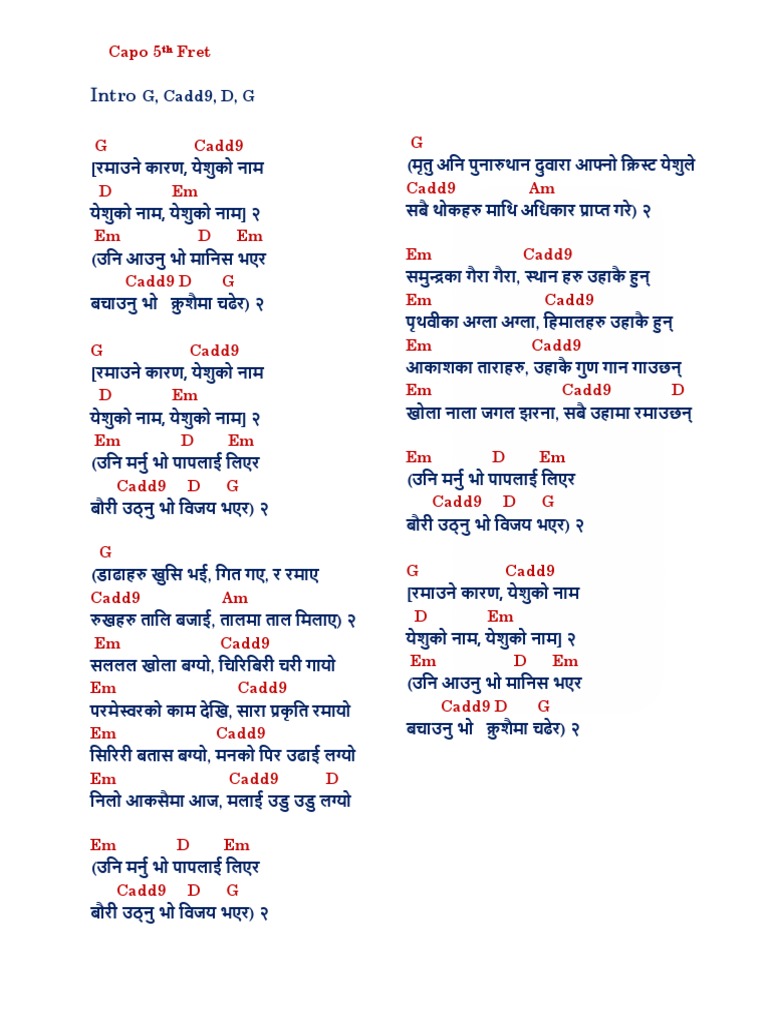 Capo 5th Fret
Intro G, Cadd9, D, G
G Cadd9
[रमाउने कारण, येशुको नाम
D Em
येशुको नाम, येशुको नाम] २
Em D Em
(उनि आउनु भो मानिस भएर
Cadd9 D G
बचाउनु भो क्रुशैमा चढेर) २
G Cadd9
[रमाउने कारण, येशुको नाम
D Em
येशुको नाम, येशुको नाम] २
Em D Em
(उनि मर्नु भो पापलाई लिएर
Cadd9 D G
बौरी उठ्नु भो विजय भएर) २
G
(डाढाहरु खुसि भई, गित गए, र रमाए
Cadd9 Am
रुखहरु तालि बजाई, तालमा ताल मिलाए) २
Em Cadd9
सललल खोला बग्यो, चिरिबिरी चरी गायो
Em Cadd9
परमेस्वरको काम देखि, सारा प्रकृति रमायो
Em Cadd9
सिरिरी बतास बग्यो, मनको पिर उढाई लग्यो
Em Cadd9 D
निलो आकसैमा आज, मलाई उडु उडु लग्यो
Em D Em
(उनि मर्नु भो पापलाई लिएर
Cadd9 D G
बौरी उठ्नु भो विजय भएर) २
G
(मृतु अनि पुनारुथान दुवारा आफ्नो क्रिस्ट येशुले
Cadd9 Am
सबै थोकहरु माथि अधिकार प्राप्त गरे) २
Em Cadd9
समुन्द्रका गैरा गैरा, स्थान हरु उहाकै हुन्
Em Cadd9
पृथवीका अग्ला अग्ला, हिमालहरु उहाकै हुन्
Em Cadd9
आकाशका ताराहरु, उहाकै गुण गान गाउछन्
Em Cadd9 D
खोला नाला जगल झरना, सबै उहामा रमाउछन्
Em D Em
(उनि मर्नु भो पापलाई लिएर
Cadd9 D G
बौरी उठ्नु भो विजय भएर) २
G Cadd9
[रमाउने कारण, येशुको नाम
D Em
येशुको नाम, येशुको नाम] २
Em D Em
(उनि आउनु भो मानिस भएर
Cadd9 D G
बचाउनु भो क्रुशैमा चढेर) २